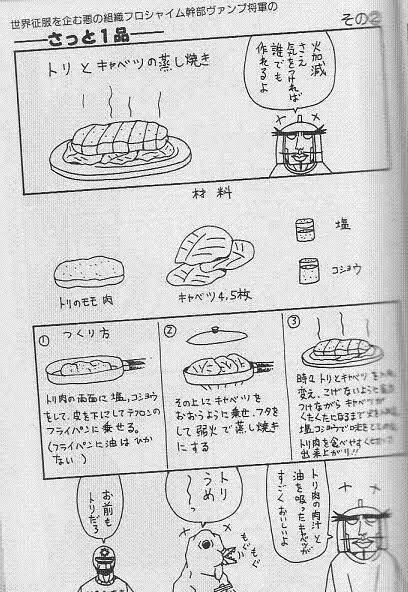 世界征服を企む悪の組織フロシャイム幹部ヴァンプ将軍の
さっと1品
その②
トリとキャベツの蒸し焼き
火加減
さえ
気をつければ
誰でも
作れるよ
材料
トリのモモ肉
キャベツ4,5枚
塩
コショウ
① つくり方
トリ肉の両面に塩,コショウ
をして、皮を下にしてテフロンの
フライパンに乗せる。
(フライパンに油はひか
ない)
②
その上にキャベツを
おおうように乗せ、フタを
して弱火で蒸し焼き
にする
③
時々トリとキャベツを
変え、こげないように
つけながらキャベツが
くたくたになるまで
塩、コショウで味を
トリ肉を食べやすく
出来上がり!!
トリ肉の肉汁と
油を吸ったキャベツが
すごくおいしいよ
トリ
うめ
〜〜っ
もぐもぐ
お前も
トリだろ